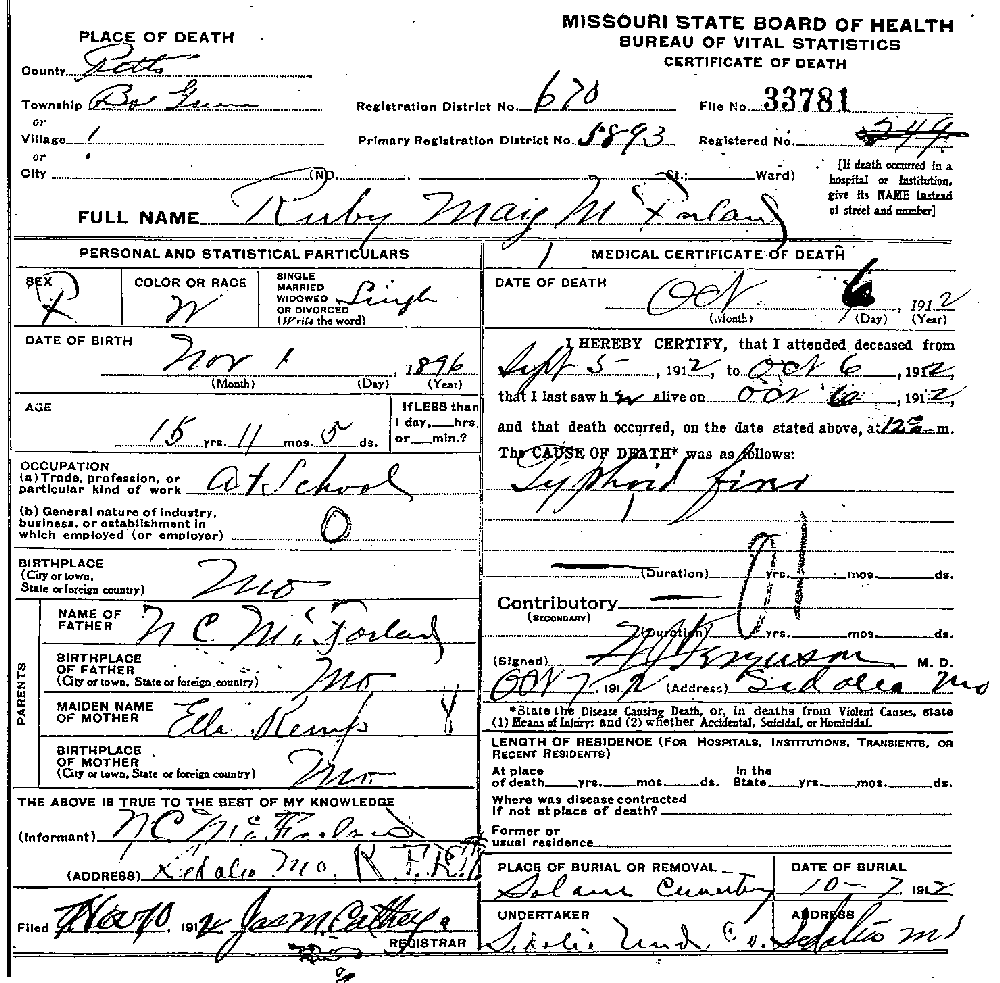 MISSOURI STATE BOARD OF HEALTH
BUREAU OF VITAL STATISTICS
CERTIFICATE OF DEATH
PLACE OF DEATH
County
Township
or
Village
or
City (No. St.: Ward)
Registration District No. 670 File No. 33781
Primary Registration District No. 5893 Registered No. 249
[If death occurred in a
hospital or Institution,
give its NAME instead
of street and number]
FULL NAME Ruby May McFarland
PERSONAL AND STATISTICAL PARTICULARS
SEX COLOR OR RACE W
SINGLE
MARRIED
WIDOWED
OR DIVORCED
(Write the word) Single
DATE OF BIRTH Nov 1, 1896
(Month) (Day) (Year)
AGE 15 yrs. 11 mos. 5 ds.
If LESS than
1 day, hrs.
or min.?
OCCUPATION
(a) Trade, profession, or
particular kind of work At School
(b) General nature of industry,
business, or establishment in
which employed (or employer) 0
BIRTHPLACE
(City or town,
State or foreign country) Mo
PARENTS
NAME OF
FATHER N C McFarland
BIRTHPLACE
OF FATHER
(City or town, State or foreign country) Mo
MAIDEN NAME
OF MOTHER Ella Kemp
BIRTHPLACE
OF MOTHER
(City or town, State or foreign country) Mo
THE ABOVE IS TRUE TO THE BEST OF MY KNOWLEDGE
(Informant) N C McFarland
(ADDRESS) Sedalia Mo.
Filed 1912 Jas M Cathey
REGISTRAR
MEDICAL CERTIFICATE OF DEATH
DATE OF DEATH Oct 6, 1912
(Month) (Day) (Year)
I HEREBY CERTIFY, that I attended deceased from
Sept 5, 1912, to Oct 6, 1912,
that I last saw her alive on Oct 6, 1912,
and that death occurred, on the date stated above, at m.
The CAUSE OF DEATH* was as follows:
Typhoid fever
(Duration) yrs. mos. ds.
Contributory
(SECONDARY)
(Duration) yrs. mos. ds.
(Signed) Ferguson M. D.
Oct 7, 1912 (Address) Sedalia Mo
*State the Disease Causing Death, or, in deaths from Violent Causes, state
(1) Means of Injury; and (2) whether Accidental, Suicidal, or Homicidal.
LENGTH OF RESIDENCE (FOR HOSPITALS, INSTITUTIONS, TRANSIENTS, OR
RECENT RESIDENTS)
At place In the
of death yrs. mos. ds. State yrs. mos. ds.
Where was disease contracted
if not at place of death?
Former or
usual residence
PLACE OF BURIAL OR REMOVAL DATE OF BURIAL
Cemetery 10-7 1912
UNDERTAKER ADDRESS
Sedalia Und. Co. Sedalia Mo